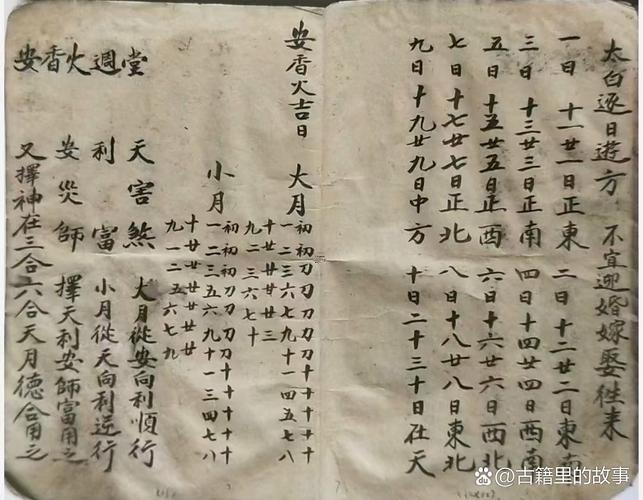 太白逐日遊方 不宜迎婚嫁娶往来
一日 十一廿一日正東 二日十二廿二日東南
三日 十三廿三日正南 四日十四廿四日西南
五日 十五廿五日正西 六日十六廿六日西北
七日十七廿七日正北 八日十八廿八日東北
九日十九廿九日中方 十日二十三十日在天
安香火吉日
大月
一二三六七九十一四五七八
九二三六七十
小月
一二三五六九十一三四七八
九一二五六七九
安香火週堂
天害煞 大月從安向利順行
利富 小月從天向利逆行
安災師 擇天利安師富用之
又擇神在三合六合天月德合用之
百家号@古籍里的故事